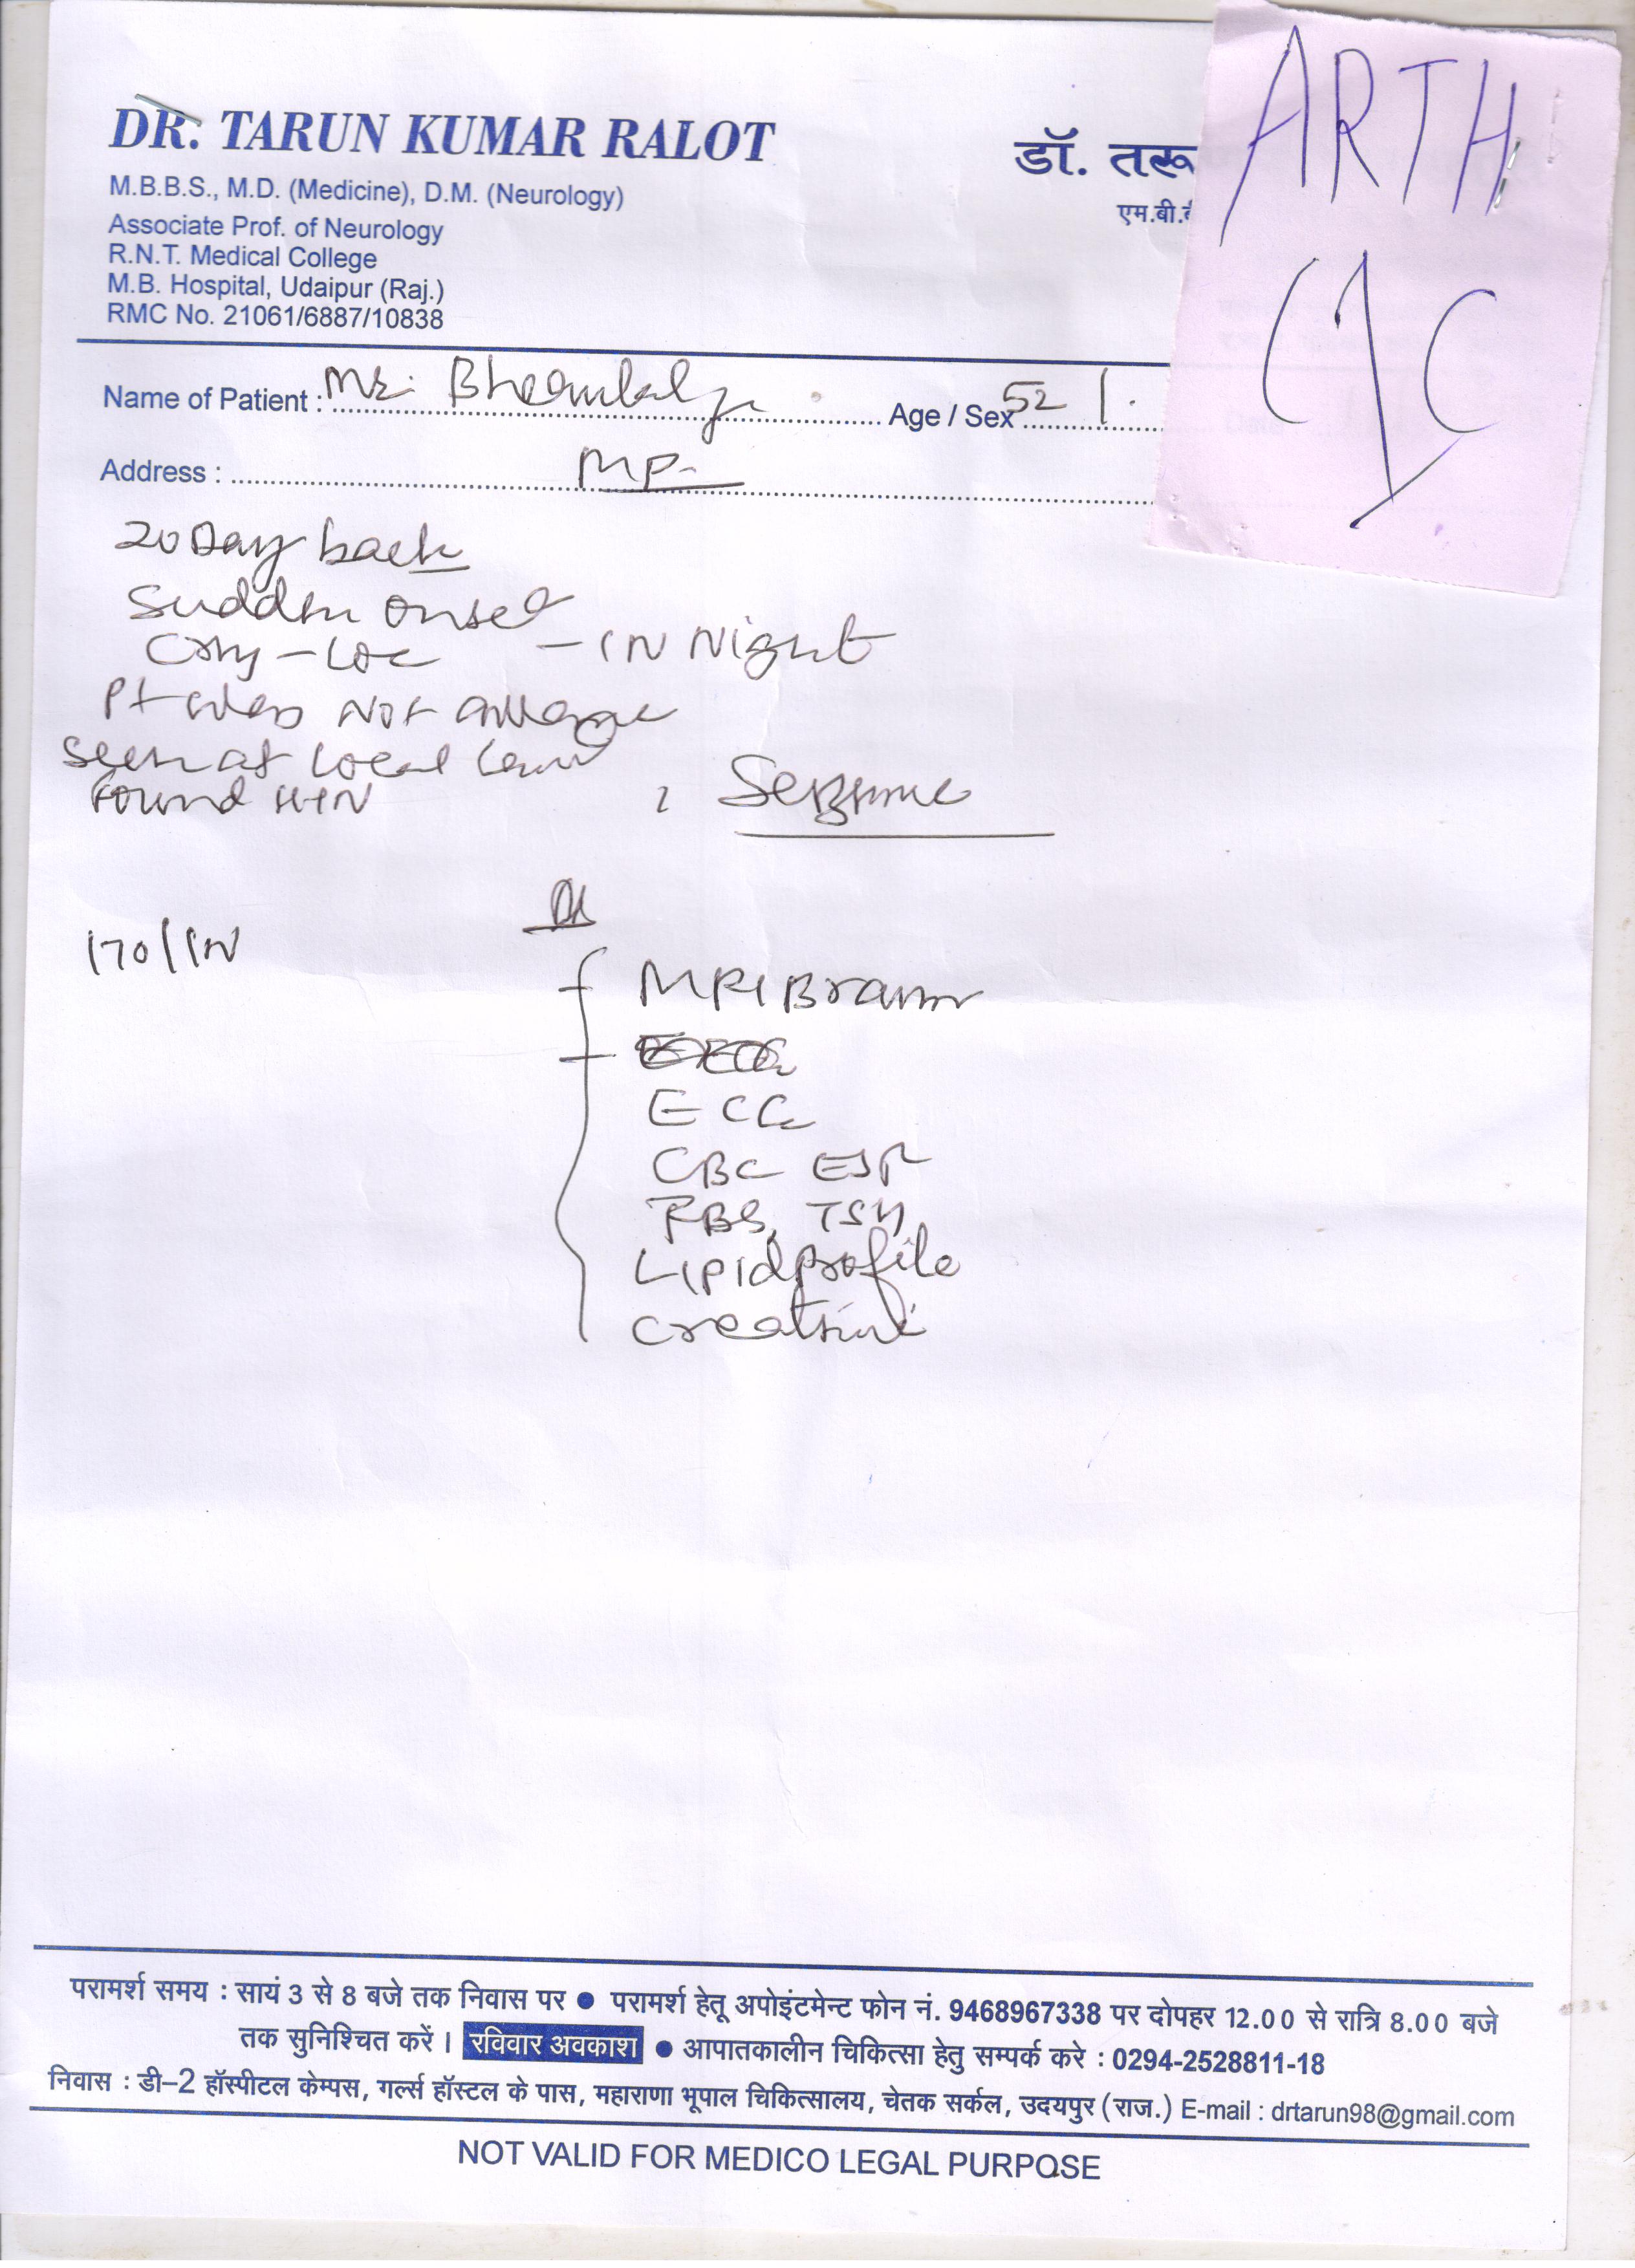 DR. TARUN KUMAR RALOT
M.B.B.S., M.D. (Medicine), D.M. (Neurology)
Associate Prof. of Neurology
R.N.T. Medical College
M.B. Hospital, Udaipur (Raj.)
RMC No. 21061/6887/10838
डॉ. तरू
एम.बी.
ARTH
Name of Patient : Mr.
Age / Sex 52
Address : MP
20 Day back
Sudden onset
- IN Night
Pt was Not
Seen at Local
Found HTN
? Seizure
170/
MRI Brain
ECG
CBC ESR
RBS, TSH
Lipid profile
Creatinine
परामर्श समय : सायं 3 से 8 बजे तक निवास पर ● परामर्श हेतू अपोइंटमेन्ट फोन नं. 9468967338 पर दोपहर 12.00 से रात्रि 8.00 बजे
तक सुनिश्चित करें । रविवार अवकाश ● आपातकालीन चिकित्सा हेतु सम्पर्क करे : 0294-2528811-18
निवास : डी–2 हॉस्पीटल केम्पस, गर्ल्स हॉस्टल के पास, महाराणा भूपाल चिकित्सालय, चेतक सर्कल, उदयपुर (राज.) E-mail : drtarun98@gmail.com
NOT VALID FOR MEDICO LEGAL PURPOSE